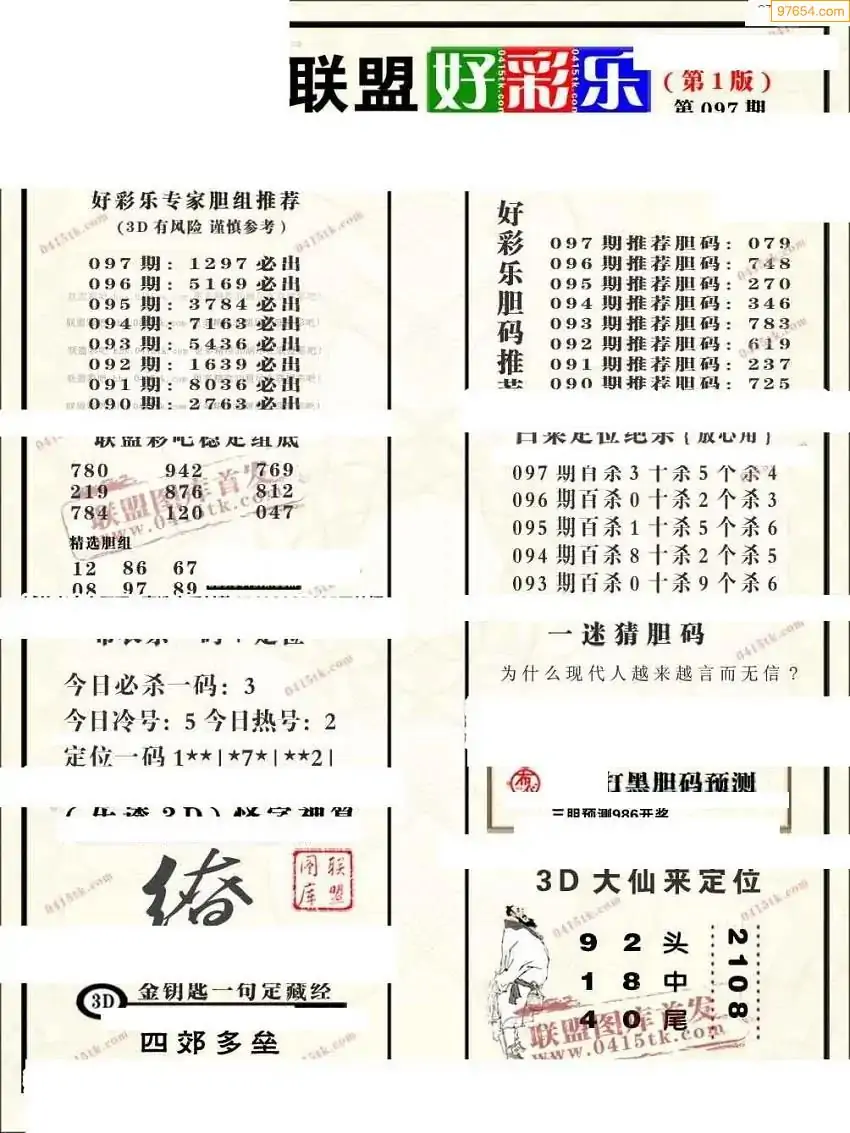 97654.com
联盟好彩乐
(第1版)
第097期
好彩乐专家胆组推荐
(3D有风险 谨慎参考)
097期: 1297必出
096期: 5169必出
095期: 3784必出
094期: 7163必出
093期: 5436必出
092期: 1639必出
091期: 8036必出
090期: 2763必出
联盟彩吧稳定组底
780 942 769
219 876 812
784 120 047
精选胆组
12 86 67
08 97 89
今日必杀一码: 3
今日冷号: 5 今日热号: 2
定位一码 1**|*7*|**2|
联盟图库
3D 金钥匙一句定藏经
四郊多垒
好彩乐胆码推荐
097期推荐胆码: 079
096期推荐胆码: 748
095期推荐胆码: 270
094期推荐胆码: 346
093期推荐胆码: 783
092期推荐胆码: 619
091期推荐胆码: 237
090期推荐胆码: 725
097期百杀3十杀5个杀4
096期百杀0十杀2个杀3
095期百杀1十杀5个杀6
094期百杀8十杀2个杀5
093期百杀0十杀9个杀6
一迷猜胆码
为什么现代人越来越言而无信?
打黑胆码预测
三胆预测986开奖
3D大仙来定位
9 2 头
1 8 中
4 0 尾
2108
联盟图库首发
www.0415tk.com